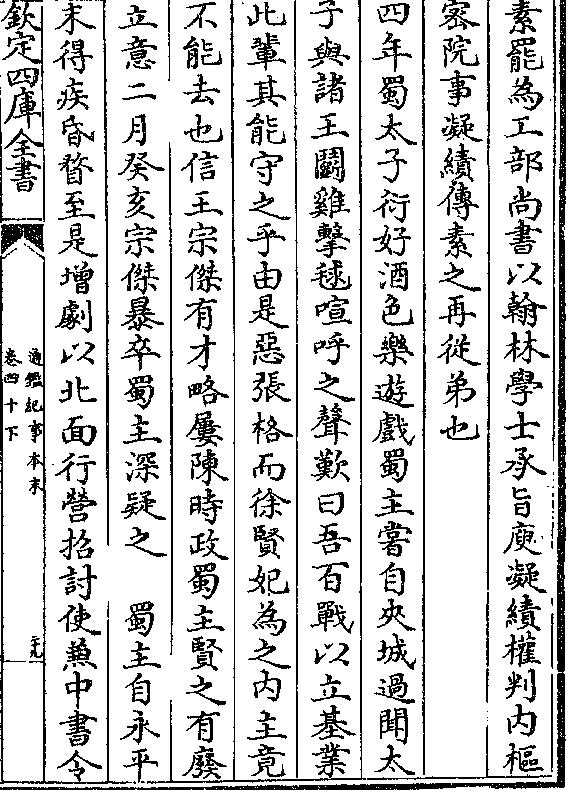 素罷為工部尚書以翰林學士承旨庾凝績權判内樞
宻院事凝績傳素之再從弟也
四年蜀太子衍好酒色樂遊戲蜀主嘗自夾城過聞太
子與諸王鬭雞擊毬喧呼之聲歎曰吾百戰以立基業
此輩其能守之乎由是惡張格而徐賢妃為之内主竟
不能去也信王宗傑有才略屢陳時政蜀主賢之有廢
立意二月癸亥宗傑暴卒蜀主深疑之　蜀主自永平
末得疾昏瞀至是增劇以北面行營招討使兼中書令
欽定四庫全書
通鑑紀事本末
卷四十下
二十九